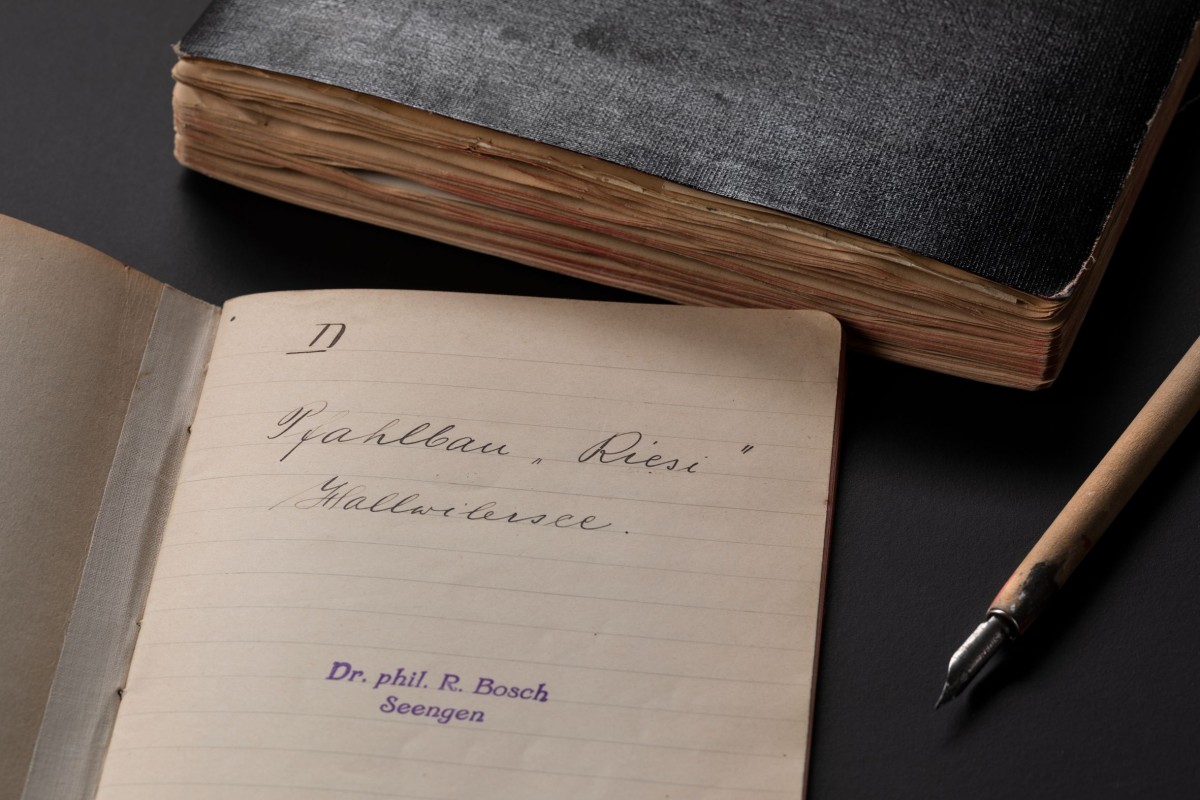 II
Pfahlbau „Riesi"
Hallwilersee.
Dr. phil. R. Bosch
Seengen